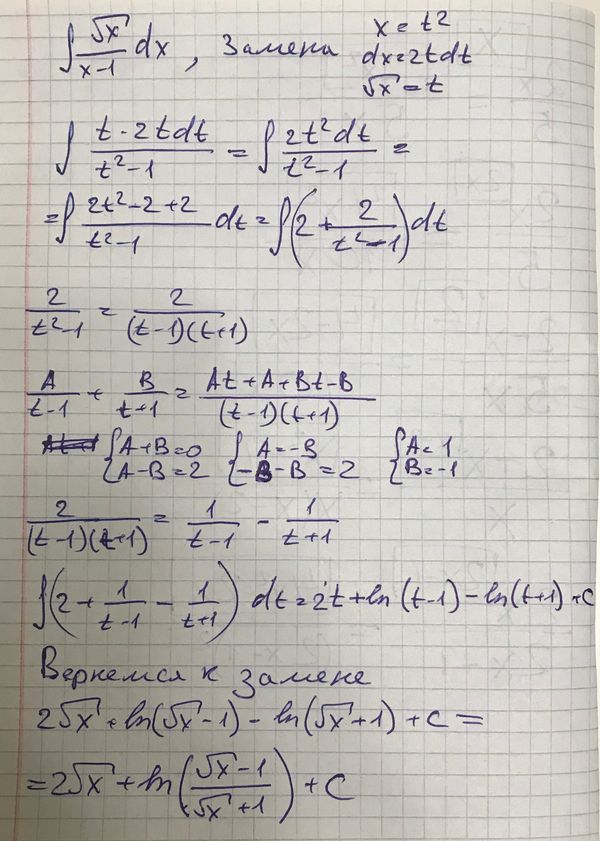 ∫ √x/(x-1) dx, Замена x = t²
dx = 2tdt
√x = t
∫ t·2tdt/(t²-1) = ∫ 2t²dt/(t²-1) =
= ∫ (2t²-2+2)/(t²-1) dt = ∫(2 + 2/(t²-1))dt
2/(t²-1) = 2/((t-1)(t+1))
A/(t-1) + B/(t+1) = (At+A+Bt-B)/((t-1)(t+1))
{A+B=0 {A=-B {A=1
{A-B=2 {-B-B=2 {B=-1
2/((t-1)(t+1)) = 1/(t-1) - 1/(t+1)
∫(2 + 1/(t-1) - 1/(t+1)) dt = 2t + ln(t-1) - ln(t+1) + C
Вернемся к замене
2√x + ln(√x-1) - ln(√x+1) + C =
= 2√x + ln((√x-1)/(√x+1)) + C